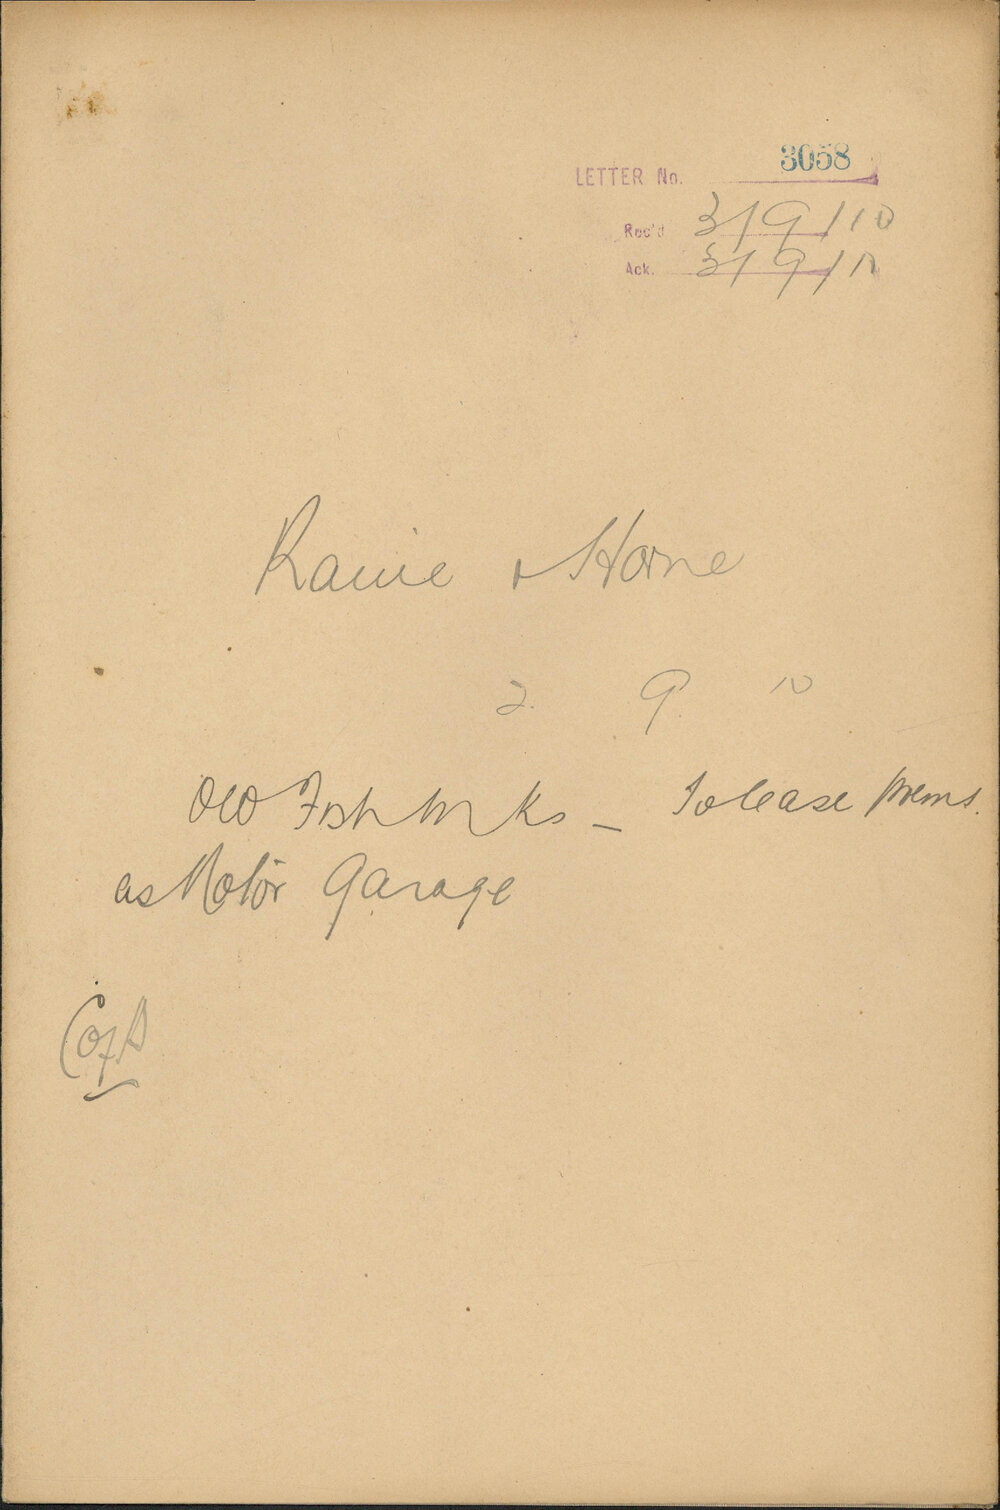 LETTER No. 3058
Rec'd 3/9/10
Ack. 3/9/10
Raine & Horne
2. 9. 10
Old Fish Mrkts — To lease prems.
as Motor Garage